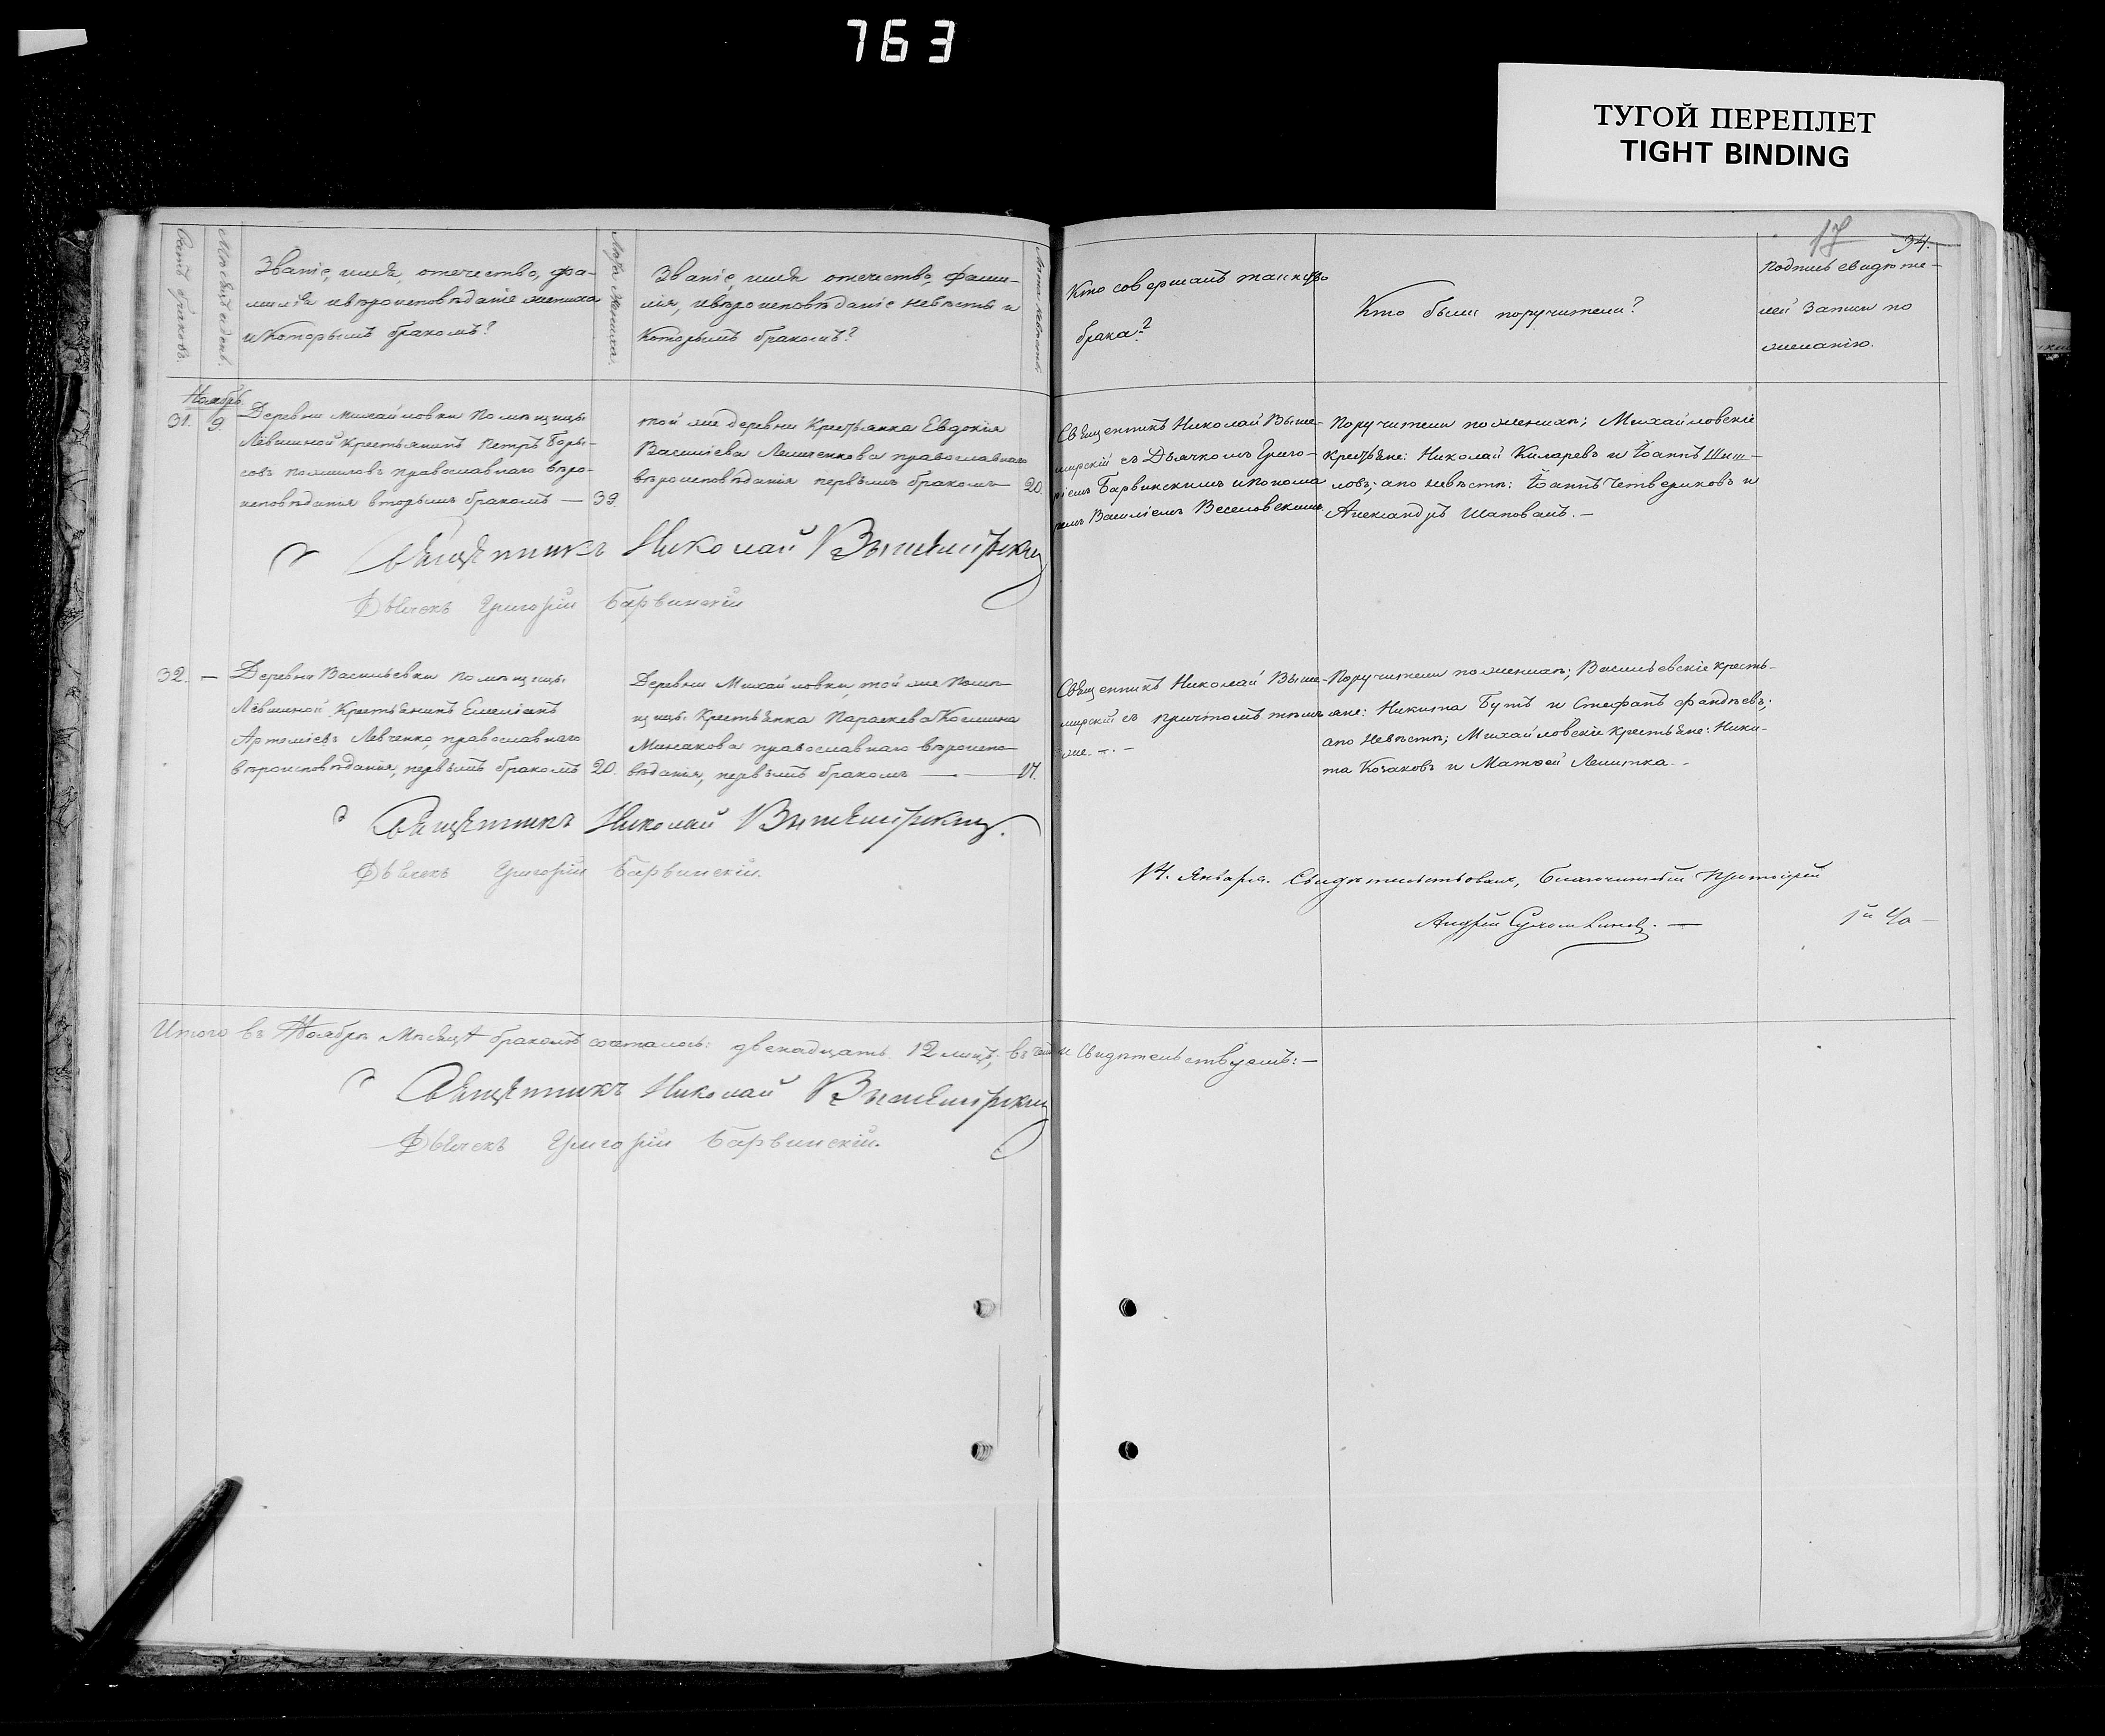 763
ТУГОЙ ПЕРЕПЛЕТ
TIGHT BINDING
17 34.
Счетъ браковъ.
Мѣсяцъ и день.
Званіе, имя, отечество, фа-
милія и вѣроисповѣданіе жениха
и которымъ бракомъ?
Лѣта жениха.
Званіе, имя, отечество, фами-
лія, и вѣроисповѣданіе невѣсты и
которымъ бракомъ?
Лѣта невѣсты
Кто совершалъ таинство
брака?
Кто были поручители?
Подпись свидѣте-
лей записи по
желанію.
Ноябрь
31. 9.
Деревни Михайловки помѣщицы
Лёвшиной крестьянинъ Петръ Бори-
совъ православнаго вѣро-
исповѣданія вторымъ бракомъ — 39.
той же деревни крестьянка Евдокія
Василіева православнаго
вѣроисповѣданія первымъ бракомъ 20.
Священникъ Николай Выше-
мирскій съ Дьячкомъ Григо-
ріемъ Барвинскимъ и понома
ремъ Василіемъ Веселовскимъ
Поручители по женихѣ; Михайловскіе
крестьяне: Николай Киларевъ и Іоаннъ Шиш-
ловъ; а по невѣстѣ: Іоаннъ Четвериковъ и
Александръ Шаповалъ. —
Священникъ Николай Вышемирскій
Дьячекъ Григорій Барвинскій
32. —
Деревни Васильевки помѣщицы
Лёвшиной крестьянинъ Емеліанъ
Артеміевъ Левченко, православнаго
вѣроисповѣданія, первымъ бракомъ 20.
Деревни Михайловки той же помѣ-
щицы крестьянка Параскева Косьмина
Минакова православнаго вѣроиспо-
вѣданія, первымъ бракомъ — 17.
Священникъ Николай Выше-
мирскій съ причтомъ тѣмъ
же. —
Поручители по женихѣ; Васильевскіе кресть-
яне: Никита Бутъ и Стефанъ Фандѣевъ;
а по невѣстѣ; Михайловскіе крестьяне: Ники-
та Козаковъ и Матѳей
Священникъ Николай Вышемирскій.
Дьячекъ Григорій Барвинскій.
14. Января. Свидѣтельствовалъ, Благочинный Протоіерей
Андрей Сухомлиновъ. —
Итого въ Ноябрѣ мѣсяцѣ бракомъ сочеталось: двенадцать 12 лицъ; въ чемъ и свидѣтельствуемъ: —
Священникъ Николай Вышемирскій
Дьячекъ Григорій Барвинскій.